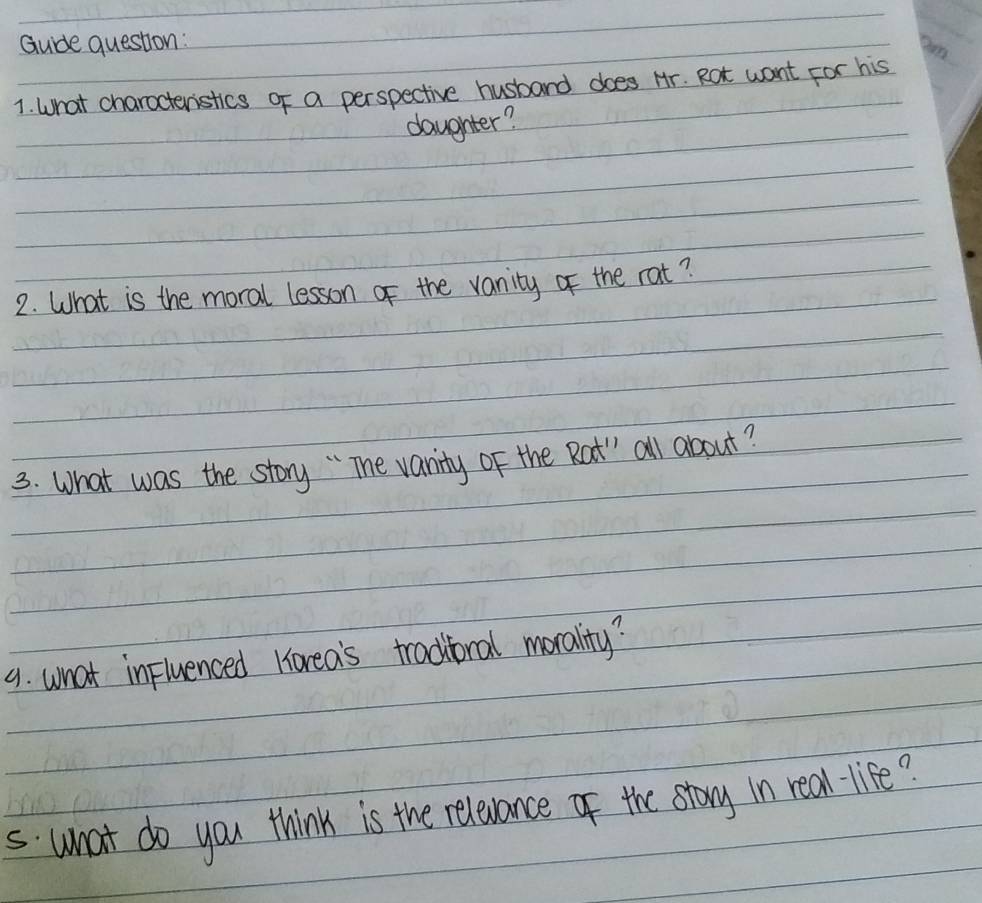 Guide question:
1. What characteristics of a perspective husband does Mr. Rat want for his
daughter?
2. What is the moral lesson of the vanity of the rat?
3. What was the story "The vanity of the Rat" all about?
4. What influenced Korea's traditoral morality?
5. What do you think is the relevance of the story in real-life?